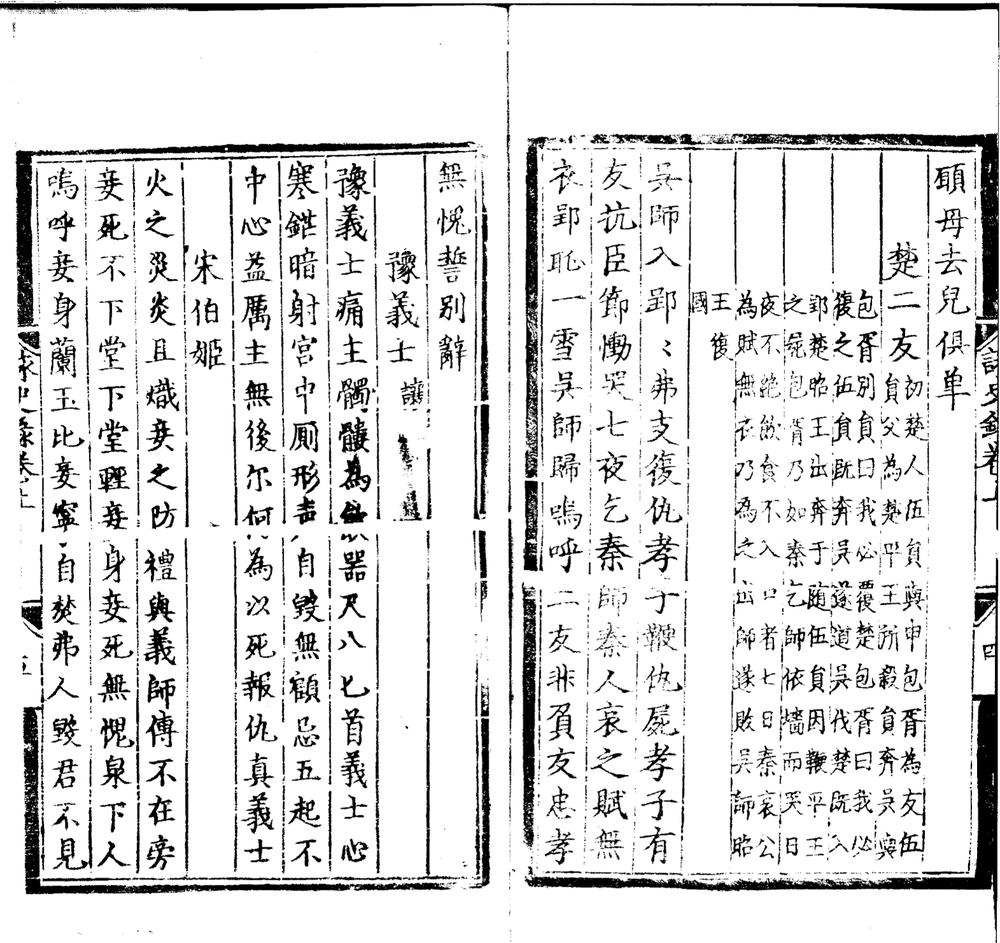 頋母去兒俱单
楚二友
初楚人伍員與申包胥為友伍
員父為楚平王所殺員奔吳與
包胥別員曰我必覆楚包胥曰我必
復之伍員既奔吳遂道吳伐楚既入
郢楚昭王出奔于随伍員因鞭平王
之屍包胥乃如秦乞師依墻而哭日
夜不絶飲食不入口者七日秦哀公
為賦無衣乃為之出師遂敗吳師昭
王復
國
吳師入郢〻弗支復仇孝子鞭仇屍孝子有
友抗臣節慟哭七夜乞秦師秦人哀之賦無
衣郢耻一雪吳師歸嗚呼二友非負友忠孝
四
無愧誓别辭
豫義士 讓
豫義士痛主髑髏為飲器尺八匕首義士心
寒鋩暗射宫中厠形声自毀無顧忌五起不
中心益厲主無後尔何為以死報仇真義士
宋伯姬
火之災炎且熾妾之防禮與義師傅不在旁
妾死不下堂下堂輕妾身妾死無愧泉下人
嗚呼妾身蘭玉比妾寧自焚弗人毀君不見